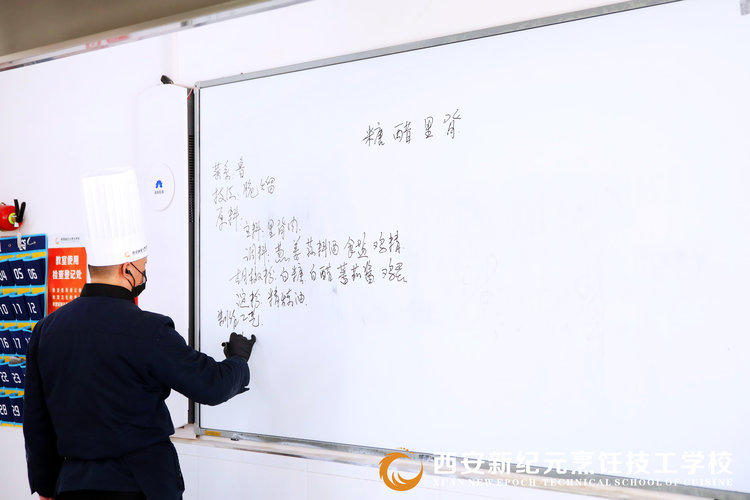 糖醋里脊
菜系 鲁
技法 脆熘
原料
主料 里脊肉
调料 葱 姜 蒜 料酒 食盐 鸡精
胡椒粉 白糖 白醋 蕃茄酱 鸡蛋
淀粉 精炼油
制作工艺
教室使用
检查登记处
04 05 06
10 11 12
16 17
22
28 29
西安新纪元烹饪技工学校
XI'AN NEW EPOCH TECHNICAL SCHOOL OF CUISINE